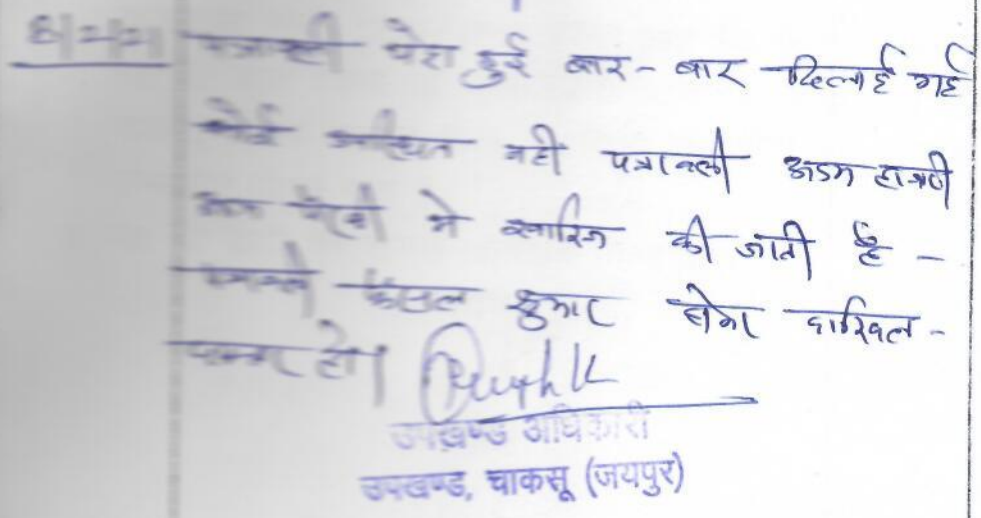 पत्रावली पेश हुई बार - बार दिलाई गई
कोई उपस्थित नही पत्रावली अदम हाजरी
अदम पैरवी मे खारिज की जाती है -
पत्रावली फैसल शुमार होकर दाखिल -
दफ्तर हो।
उपखण्ड अधिकारी
उपखण्ड, चाकसू (जयपुर)